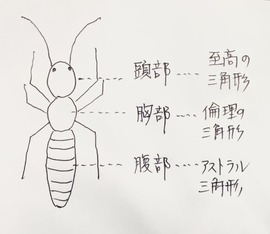 頭部……至高の
三角形
胸部……倫理の
三角形
腹部……アストラル
三角形